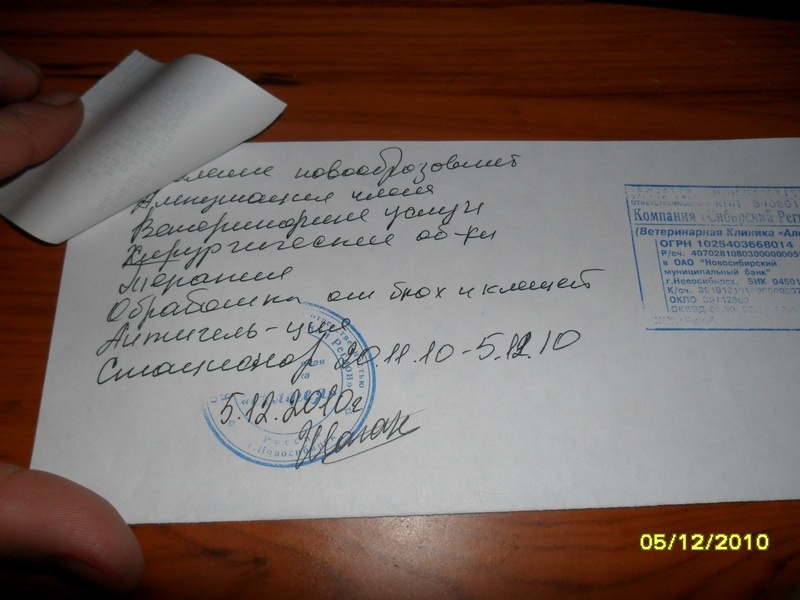 новообразований
Ампутация члена
Ветеринарные услуги
Хирургические об-ки
Терапия
Обработка от блох и клещей
Антигель-ция
Стационар 20.11.10-5.12.10
5.12.2010г
Компания «Сибирский Реги
(Ветеринарная Клиника «Але
ОГРН 1025403668014
Р/сч. 4070281080300000005
в ОАО "Новосибирский
муниципальный банк"
г.Новосибирск, БИК 04501
ОКПО
Россия
г.Новосибирск
05/12/2010